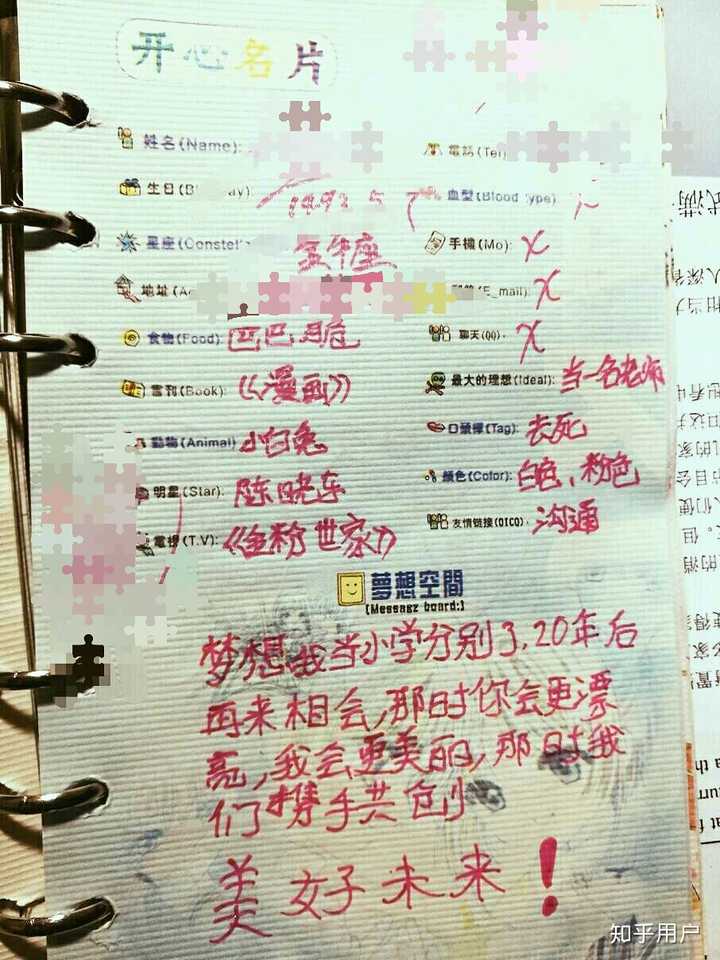 开心名片
姓名(Name):
電話(Tel
生日(B
1992.5
血型(Blood Type)
星座(Constel
金牛座
手機(Mo): X
地址(A
E_mail): X
食物(Food): 巴巴
聊天(QQ). X
書刊(Book): 《漫画》
最大的理想(Ideal): 当一名老师
動物(Animal) 小白兔
口頭禪(Tag): 去死
明星(Star): 陈晓东
顏色(Color): 白色、粉色
電視(T.V): 《金粉世家》
友情链接(OICQ). 沟通
夢想空間
(Message board:)
梦想我当小学分别了,20年后
再来相会,那时你会更漂
亮,我会更美丽,那时我
们携手共创
美好未来!
知乎用户